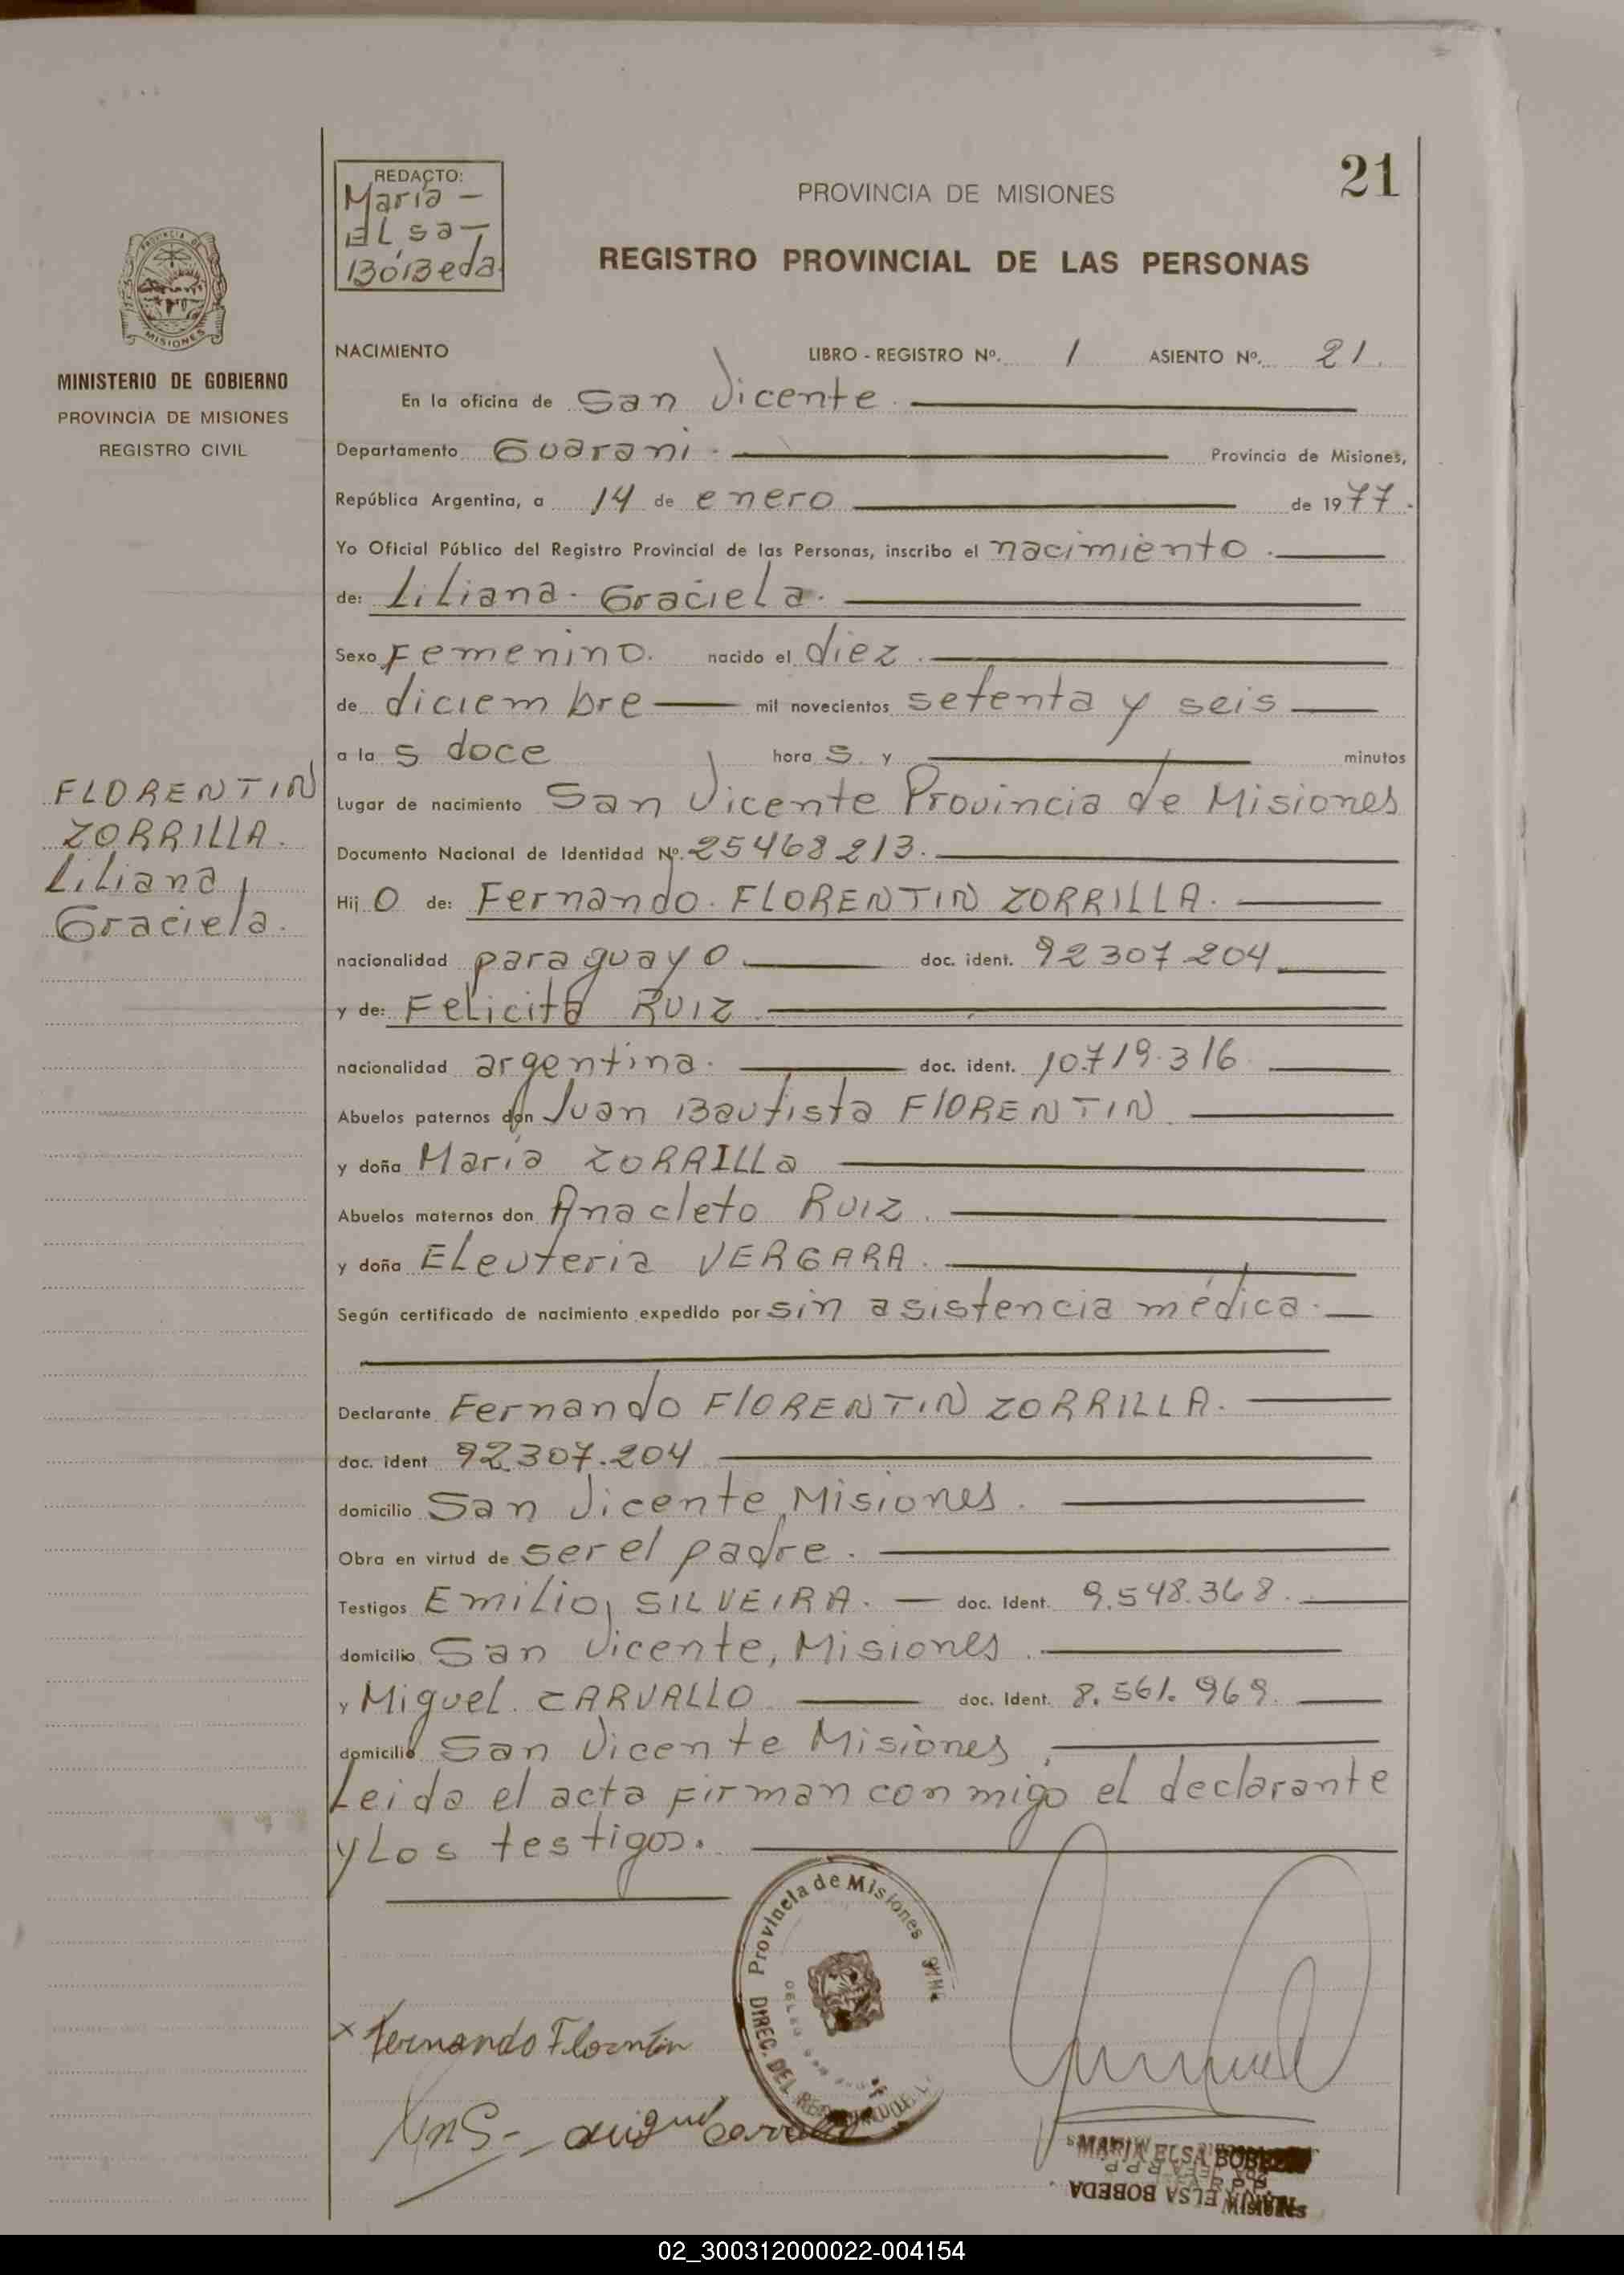 21
REDACTO:
Maria -
ELsa -
BóBeda
PROVINCIA DE MISIONES
REGISTRO PROVINCIAL DE LAS PERSONAS
PROVINCIA DE
MISIONES
MINISTERIO DE GOBIERNO
PROVINCIA DE MISIONES
REGISTRO CIVIL
NACIMIENTO LIBRO - REGISTRO Nº. 1 ASIENTO Nº. 21.
En la oficina de San Vicente
Departamento Guarani. Provincia de Misiones,
República Argentina, a 14 de enero de 1977.
Yo Oficial Público del Registro Provincial de las Personas, inscribo el nacimiento.
de: Liliana. Graciela.
Sexo Femenino. nacido el diez.
de diciembre mil novecientos setenta y seis
a la s doce hora s y minutos
Lugar de nacimiento San Vicente Provincia de Misiones
Documento Nacional de Identidad Nº. 25468213.
Hij O de: Fernando. FLORENTIN ZORRILLA.
nacionalidad paraguayo doc. ident. 92307204
y de: Felicita RUIZ
nacionalidad argentina. doc. ident. 10.719.316
Abuelos paternos don Juan Bautista FlORENTIN
y doña María ZORRILLa
Abuelos maternos don Anacleto RUIZ.
y doña ELeuteria VERGARA.
Según certificado de nacimiento expedido por sin asistencia médica.
Declarante Fernando FlORENTIN ZORRILLA.
doc. ident 92307.204
domicilio San Vicente Misiones.
Obra en virtud de ser el padre.
Testigos Emilio SILVEIRA. doc. Ident. 9.548.368.
domicilio San Vicente, Misiones.
y Miguel. CARVALLO doc. Ident. 8.561.969.
domicilio San Vicente Misiones
Leida el acta Firman conmigo el declarante
y Los testigos.
FLORENTIN
ZORRILLA.
Liliana
Graciela.
Provincia de Misiones
DIREC. DEL
x Fernando Florentin
Miguel Carvallo
MARIA ELSA BOBEDA
MARIA ELSA BOBEDA
02_300312000022-004154